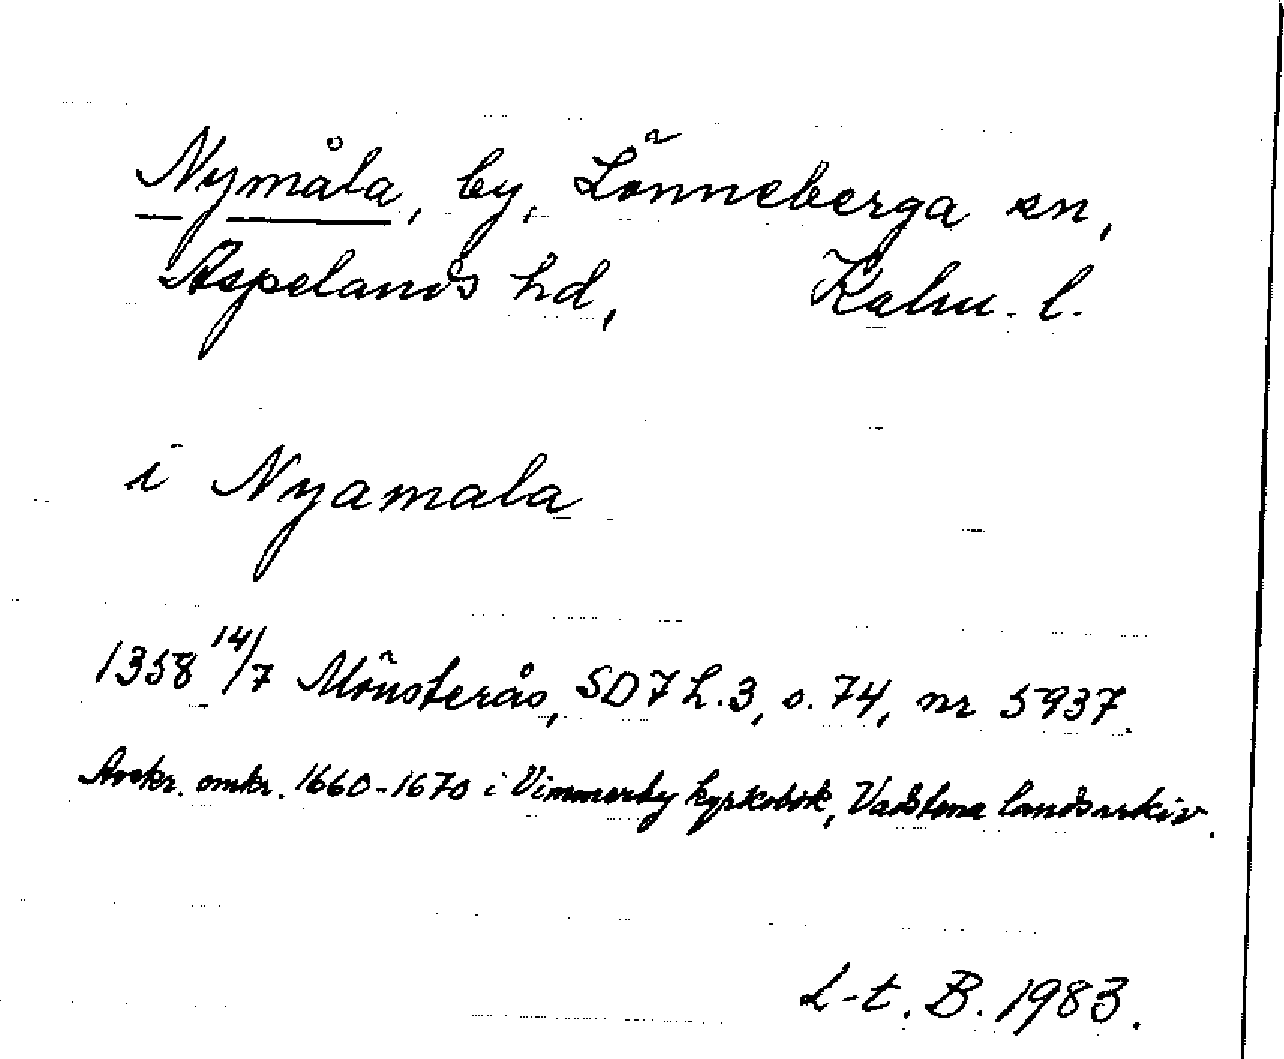 Nymåla, by, Lönneberga sn,
Aspelands hd, Kalm. l.
i Nyamala
1358 14/7 Mönsterås, SD 7 h. 3, s. 74, nr 5937.
Avskr. omkr. 1660-1670 i Vimmerby kyrkobok, Vadstena landsarkiv.
L-t. B. 1983.